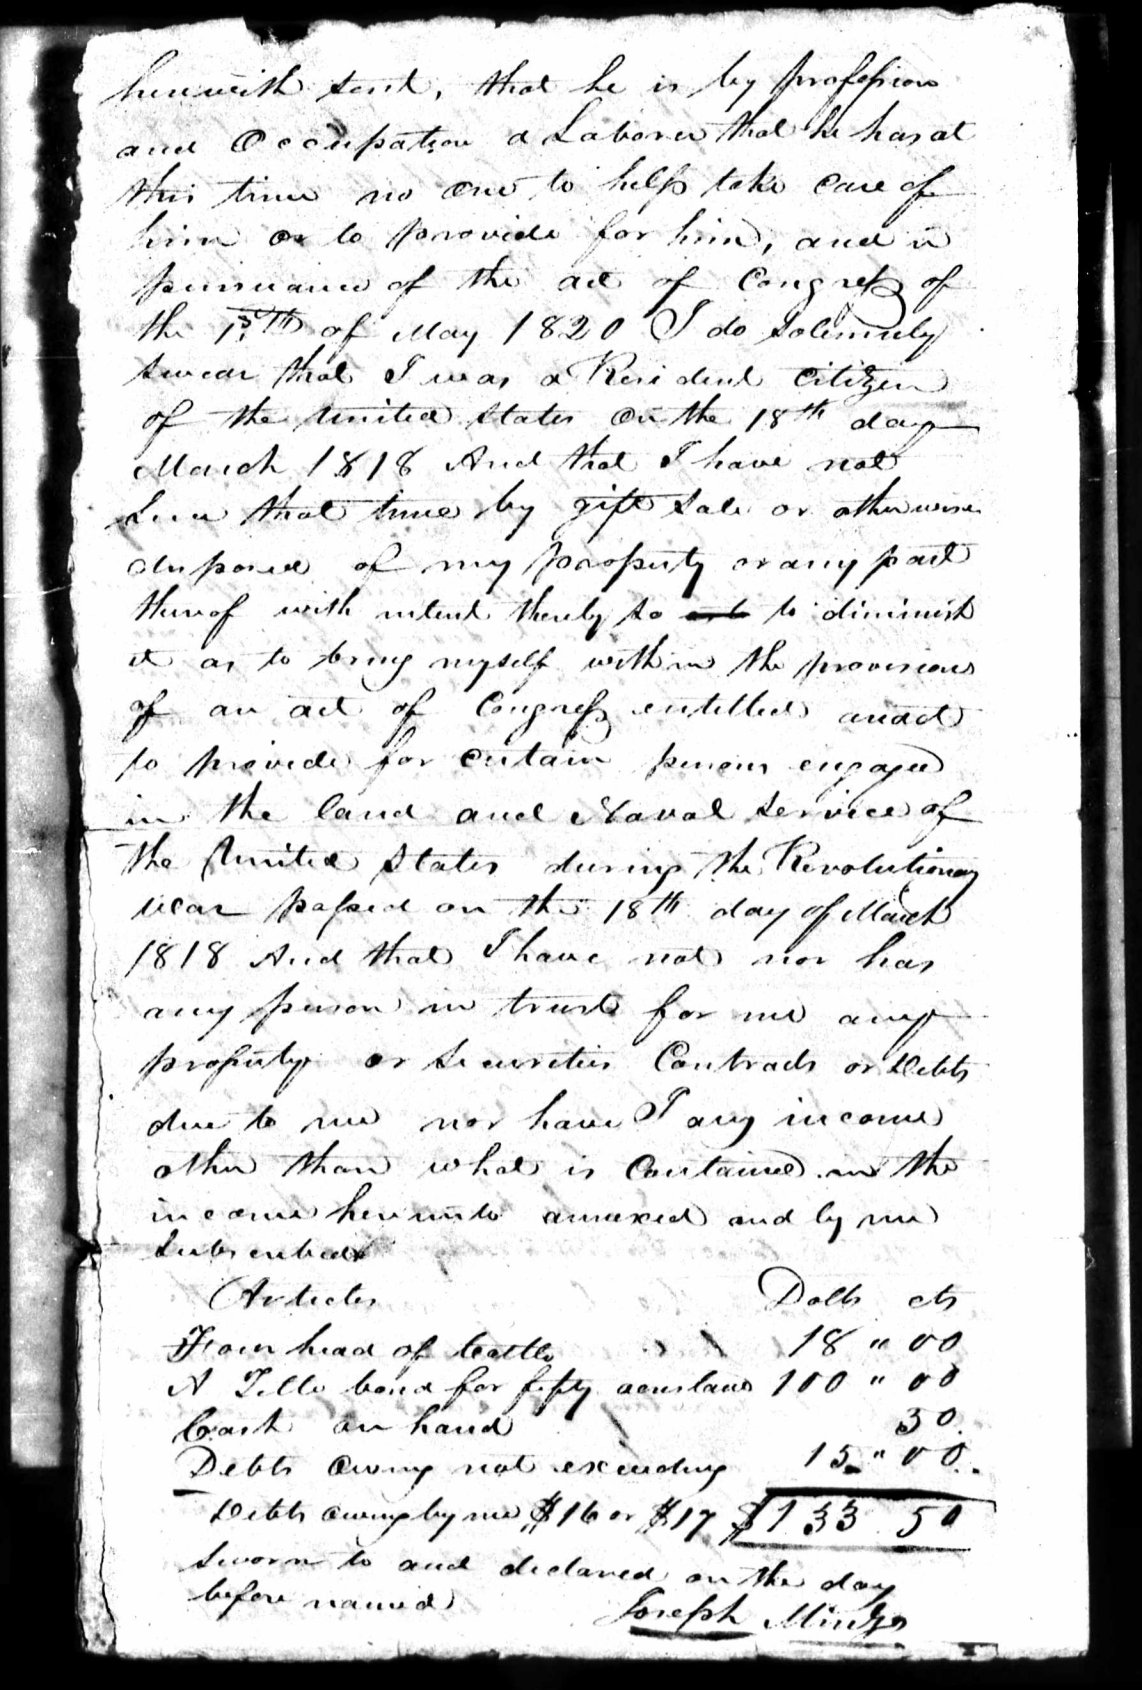 herewith sent, that he is by profession
and Occupation a Laborer that he has at
this time no one to help take care of
him or to provide for him, and in
pursuance of the act of Congress of
the 1st of May 1820 I do Solemnly
swear that I was a Resident citizen
of the united States on the 18th day
March 1818 And that I have not
since that time by gift Sale or otherwise
disposed of my property or any part
thereof with intent thereby so to diminish
it as to bring myself within the provisions
of an act of Congress entitled an act
to provide for certain persons engaged
in the land and Naval Service of
the United States during the Revolutionary
war passed on the 18th day of March
1818 And that I have not nor has
any person in trust for me any
property or Securities Contracts or Debts
due to me nor have I any income
other than what is Contained in the
income hereunto annexed and by me
Subscribed
Articles Dolls cts
Four head of Cattle 18 " 00
A Title bond for fifty acres land 100 " 00
Cash on hand 50
Debts owing not exceeding 15 " 00
Debts owing by me $16 or $17 $133 50
Sworn to and declared on the day
before named
Joseph